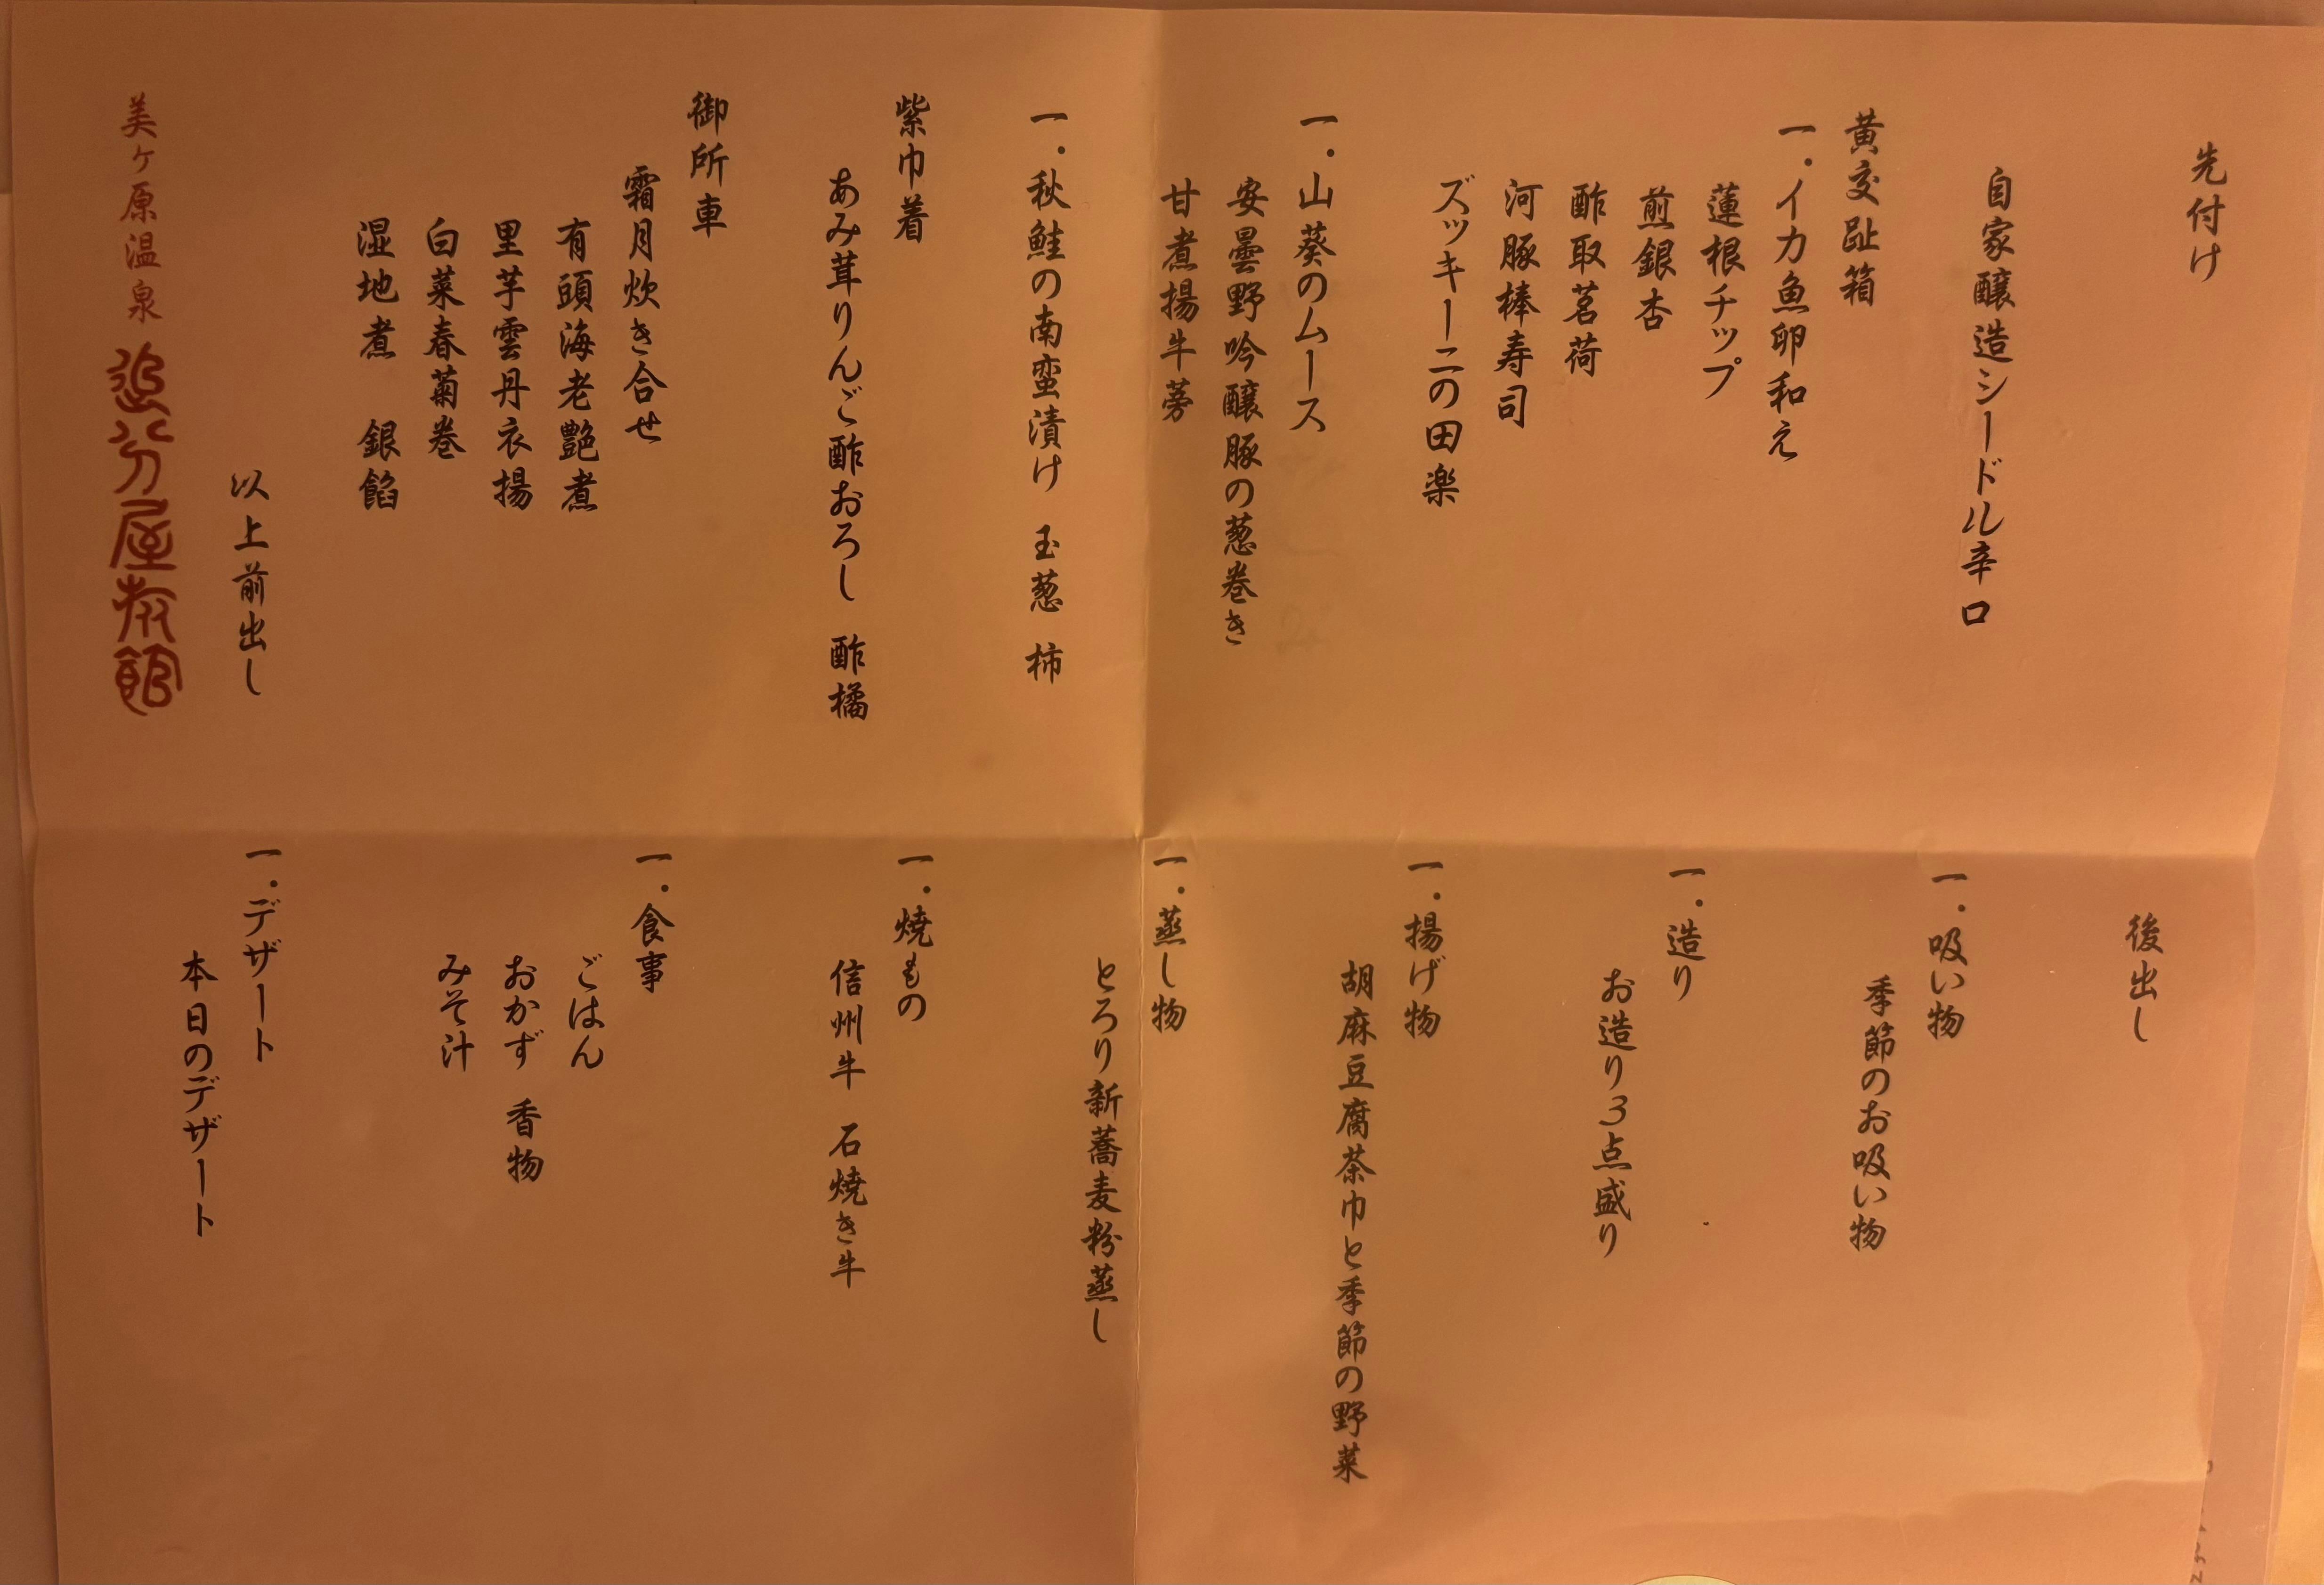 先付け
自家醸造シードル辛口
黄交趾箱
一.イカ魚卵和え
蓮根チップ
煎銀杏
酢取茗荷
河豚棒寿司
ズッキーニの田楽
一.山葵のムース
安曇野吟醸豚の葱巻き
甘煮揚牛蒡
一.秋鮭の南蛮漬け 玉葱 柿
紫巾着
あみ茸りんご酢おろし 酢橘
御所車
霜月炊き合せ
有頭海老艶煮
里芋雲丹衣揚
白菜春菊巻
湿地煮 銀餡
以上前出し
美ヶ原温泉 追分屋旅館
後出し
一.吸い物
季節のお吸い物
一.造り
お造り3点盛り
一.揚げ物
胡麻豆腐茶巾と季節の野菜
一.蒸し物
とろり新蕎麦粉蒸し
一.焼もの
信州牛 石焼き牛
一.食事
ごはん
おかず 香物
みそ汁
一.デザート
本日のデザート